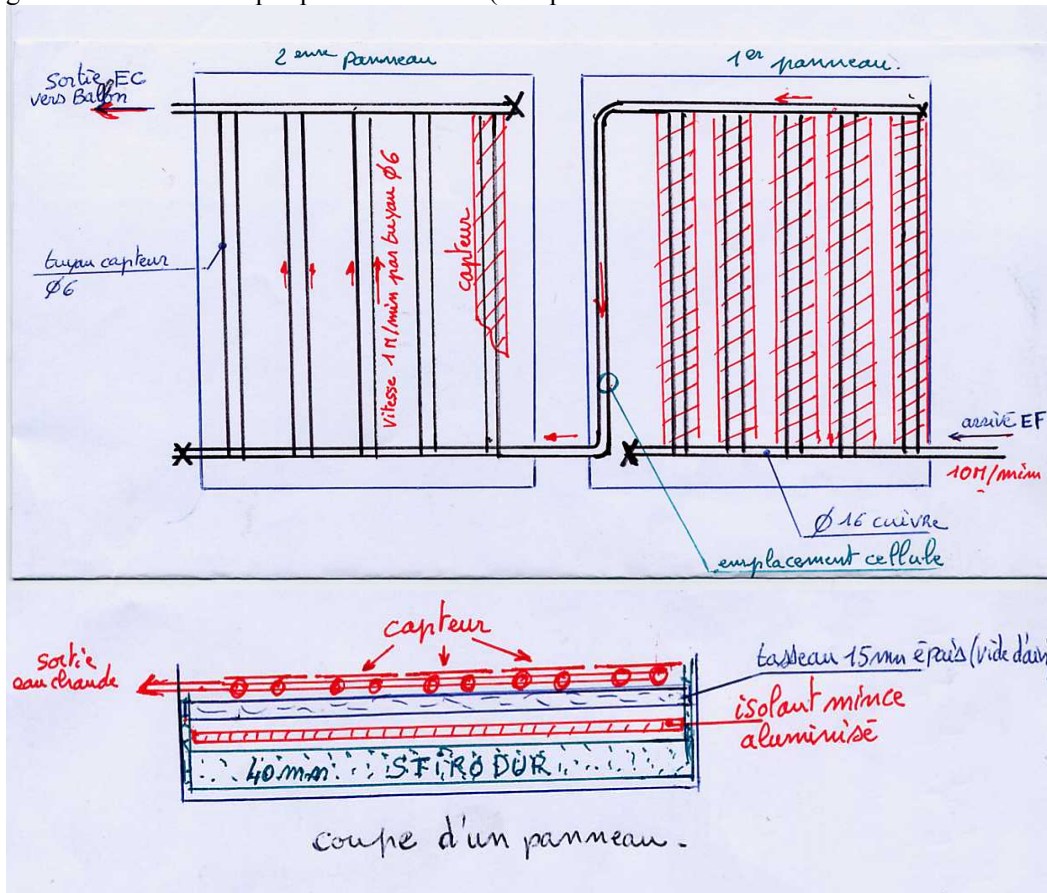 2 eme Panneau
1er panneau.
Sortie EC
vers Ballon
tuyau capteur
Ø6
vitesse 1 M/min par tuyau Ø6
capteur
arrivé EF
10M/min
Ø 16 cuivre
emplacement cellule
capteur
sortie
eau chaude
tasseau 15mm épais (vide d'air
isolant mince
aluminisé
40mm STIRODUR
coupe d'un panneau.